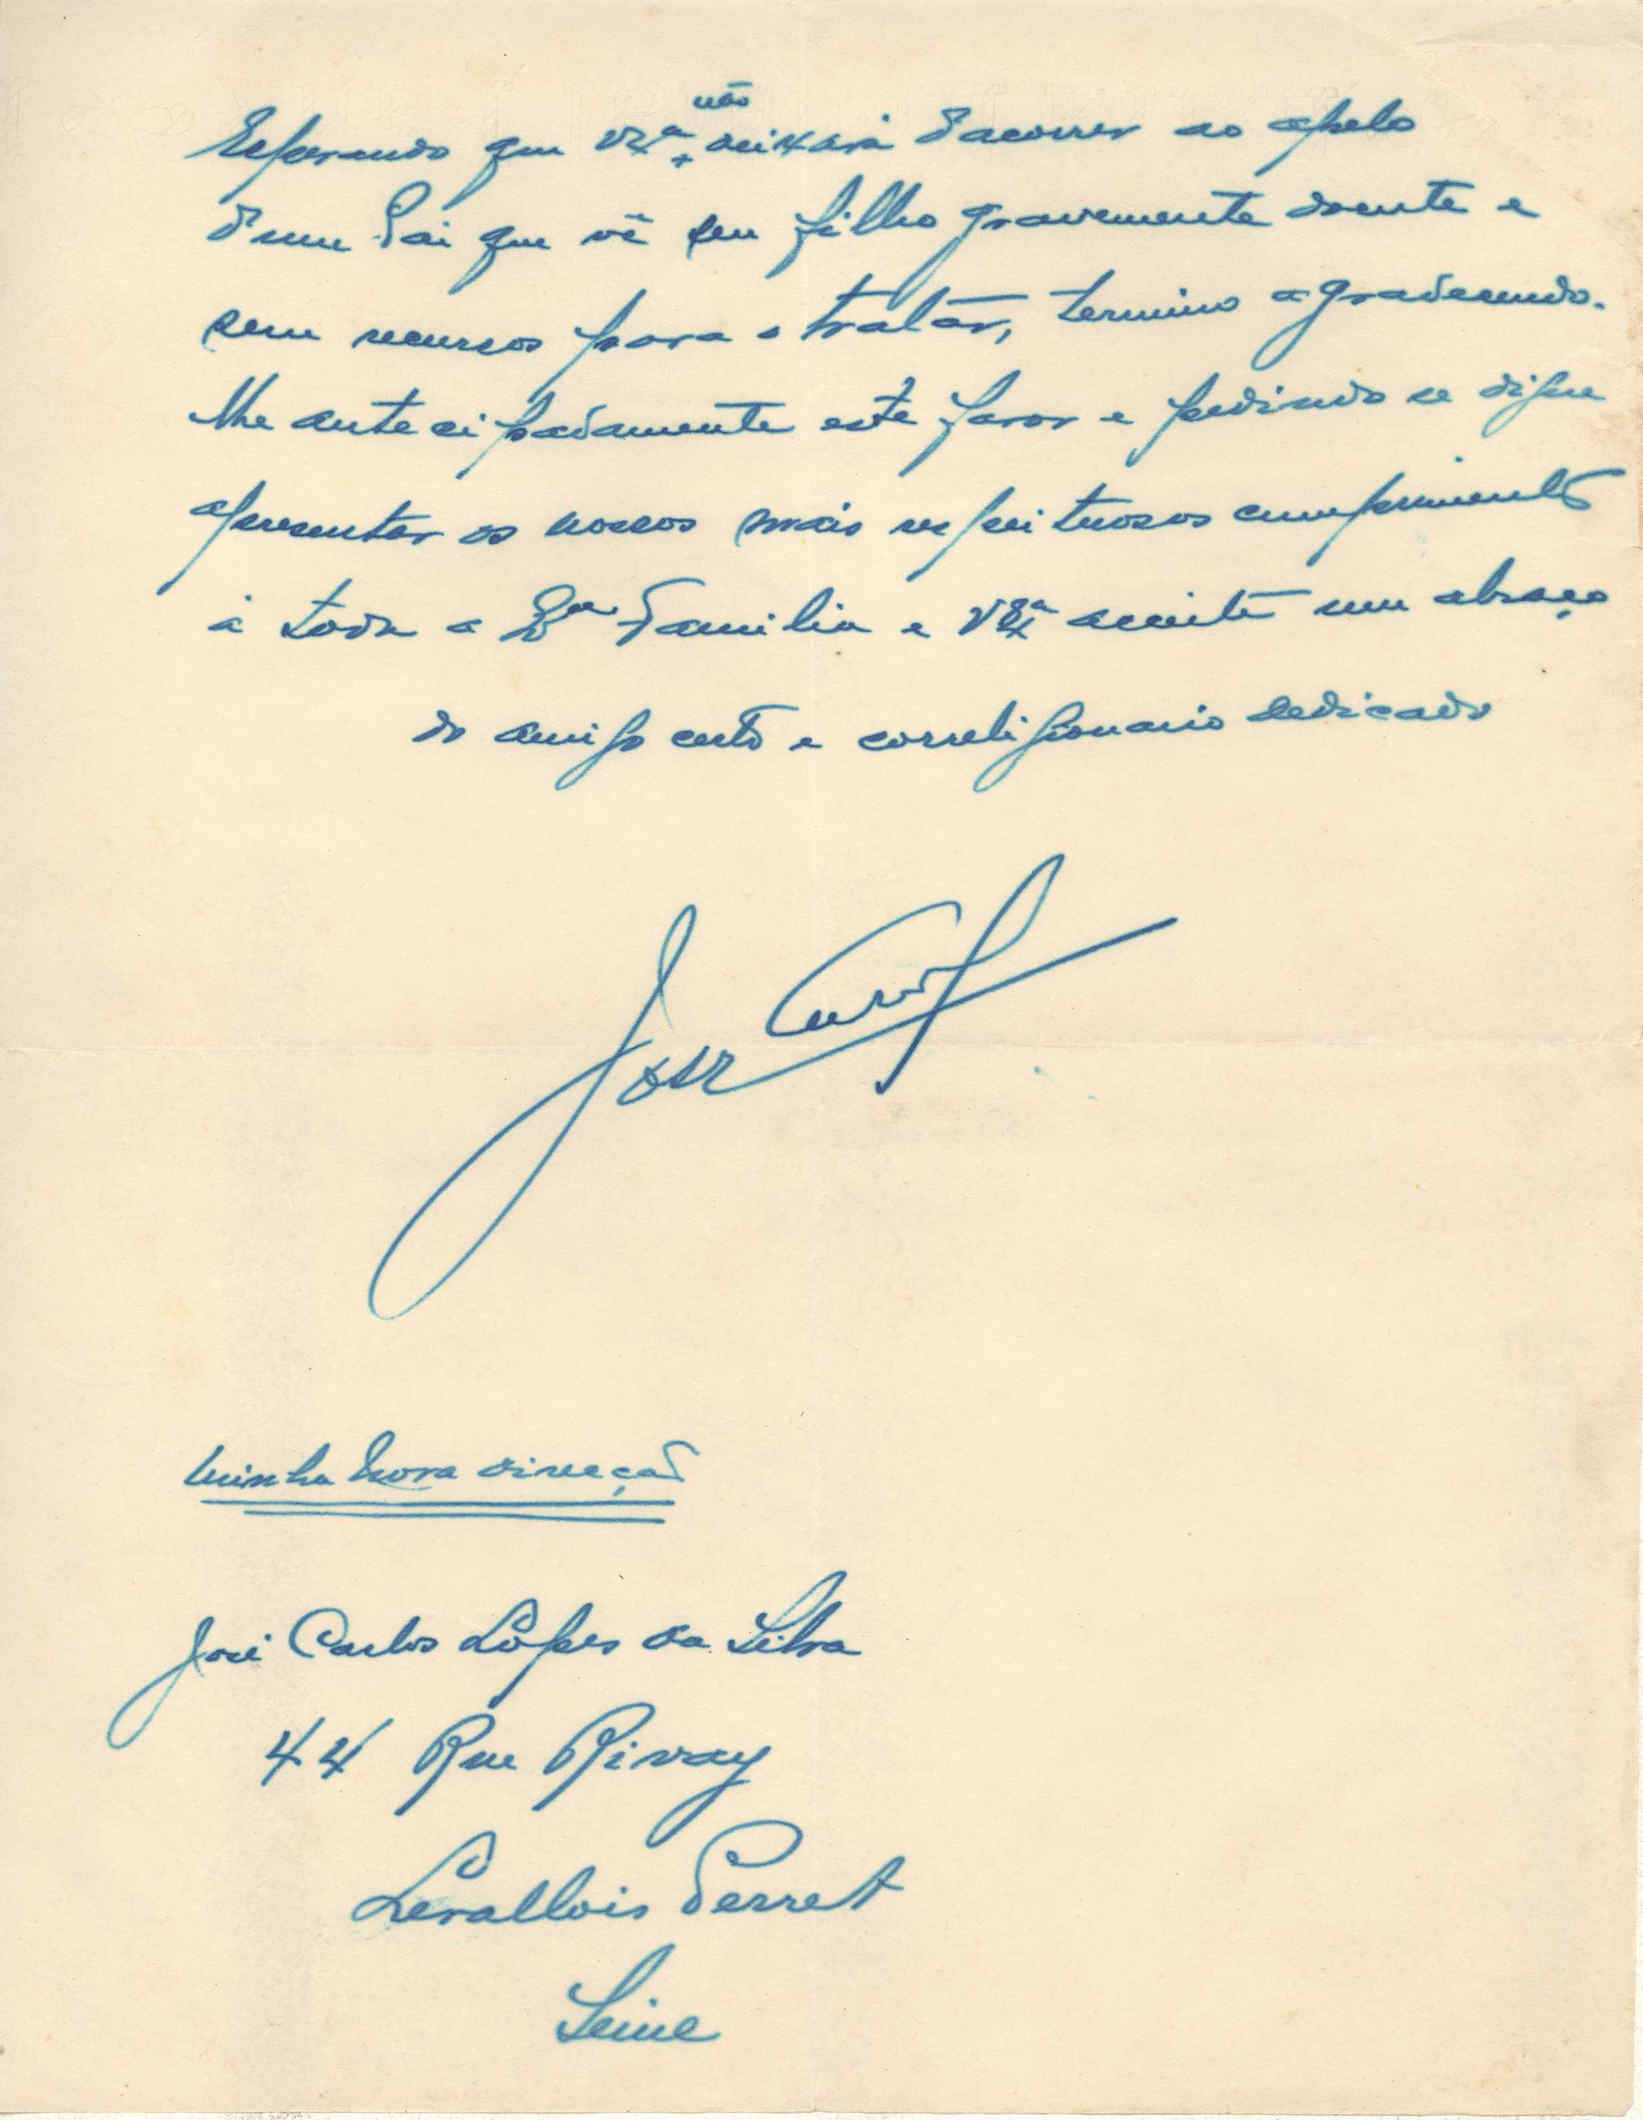 Esperando que V. Exª não deixará d'acorrer ao apelo
d'um Pai que vê seu filho gravemente doente e
sem recursos para o tratar, termino agradecendo-
lhe antecipadamente este favor e pedindo se digne
apresentar os nossos mais respeituosos cumprimentos
á toda a Exma Familia e V. Exª aceite um abraço
do amigo certo e correligionario dedicado
José
Minha Nova direcção
José Carlos Lopes da Silva
44 Rue Rivay
Levallois Perret
Seine